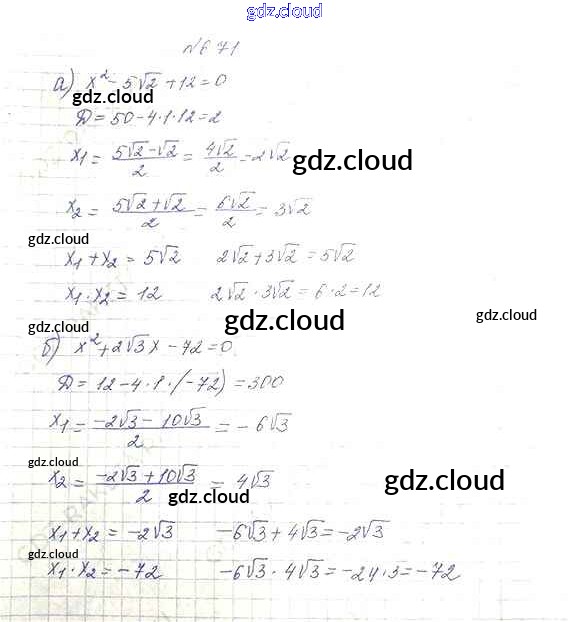 gdz.cloud
№671
а) x² - 5√2 + 12 = 0
gdz.cloud
Д = 50 - 4·1·12 = 2
x₁ = (5√2 - √2)/2 = 4√2/2 = 2√2
gdz.cloud
x₂ = (5√2 + √2)/2 = 6√2/2 = 3√2
gdz.cloud
x₁ + x₂ = 5√2 2√2 + 3√2 = 5√2
x₁ · x₂ = 12 2√2 · 3√2 = 6·2 = 12
gdz.cloud gdz.cloud gdz.cloud
б) x² + 2√3x - 72 = 0
Д = 12 - 4·1·(-72) = 300
x₁ = (-2√3 - 10√3)/2 = -6√3
gdz.cloud
x₂ = (-2√3 + 10√3)/2 = 4√3
gdz.cloud gdz.cloud
x₁ + x₂ = -2√3 -6√3 + 4√3 = -2√3
gdz.cloud
x₁ · x₂ = -72 -6√3 · 4√3 = -24·3 = -72